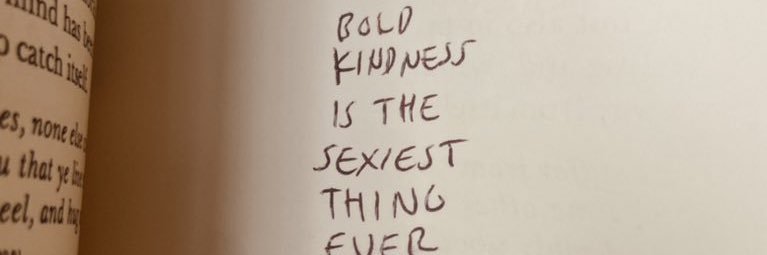 mind has be
o catch itself.
es, none else
u that ye
eel, and
BOLD
KINDNESS
IS THE
SEXIEST
THING
EVER